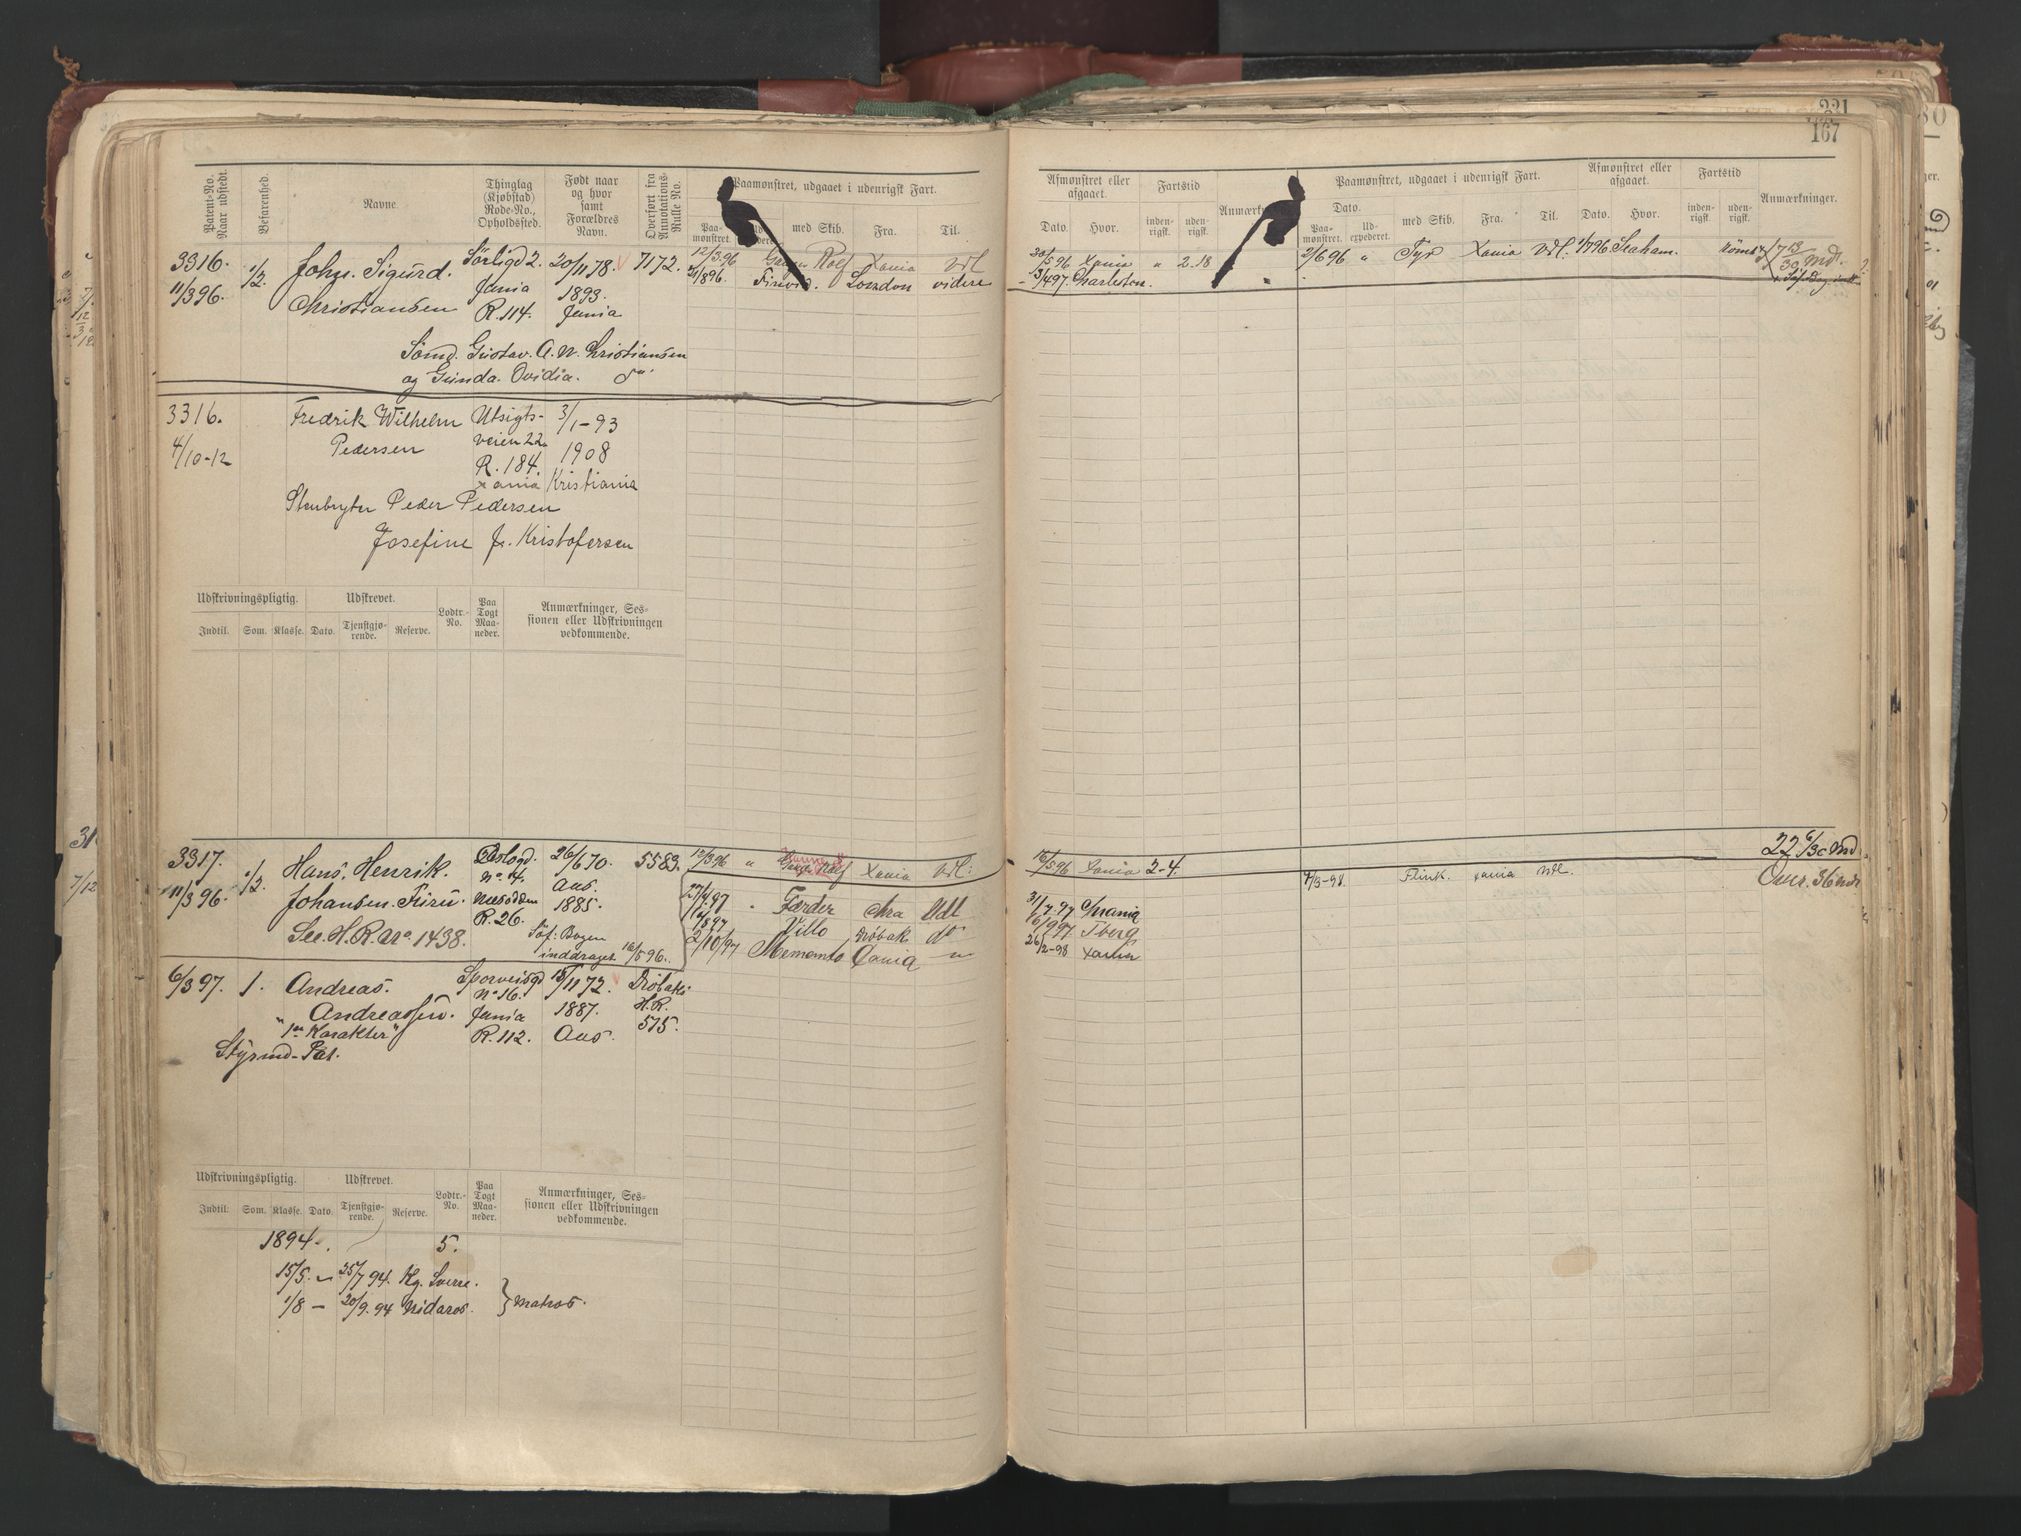 221
167
Patent-No. Naar udstedt.
Befarenhed.
Navne.
Thinglag (Kjøbstad) Rode-No., Opholdssted.
Født naar og hvor samt Forældres Navn.
Overført fra Annotations-Rulle No.
Paamønstret, udgaaet i udenrigsk Fart.
Paamønstret.
med Skib.
Fra.
Til.
Afmønstret eller afgaaet.
Dato.
Hvor.
Fartstid
indenrigsk.
udenrigsk.
Paamønstret, udgaaet i udenrigsk Fart.
Dato.
Paamønstret.
Udexpederet.
med Skib.
Fra.
Til.
Afmønstret eller afgaaet.
Dato.
Hvor.
Fartstid
indenrigsk.
udenrigsk.
Anmærkninger.
3316. 1/2. Johan Sigurd. Sörligd 2. 20/11 78. 7172. 12/3.96 Rolf Xania Udl
11/3 96. Christiansen Jania 1893. London videre
R. 114. Jania
30/5 96 Xania " 2.18
13/4 97. Charleston.
2/6 96 " Tyr Xania Udl. 1/7 96 Seaham. rømt
Sömd. Gustav. A. W. Christiansen
og Gunda. Ovidia.
3316. Fredrik Wilhelm Utsigts- 3/1-93
4/10-12 Pedersen veien 22. 1908
R. 184.
Xania Kristiania
Stenbryter Peder Pedersen
Josefine J. Kristofersen
Udskrivningspligtig. Udskrevet. Lodtr.-No. Paa Togt Maaneder. Anmærkninger, Sessionen eller Udskrivningen vedkommende.
Indtil. Som. Klasse. Dato. Tjenstgjørende. Reserve.
3317. 1/2. Hans. Henrik. Oslogd. 26/6 70. 5583. 12/3 96 " Xania Udl:
11/3 96. Johansen. Furu. No 4. Aas.
Næsodden 1885.
R. 26.
See. H. R. No 1438.
Söf: Bogen
inddraget 16/5 96.
27/4 97 " Færder Chra Udl
Villo Drøbak do
2/10/97 Memento Xania "
16/5 96 Xania 2-4.
31/7 97 Chrania
16/9 97 Tberg
26/2-98 Xania
Flink. Xania Udl.
22 6/30 Md
Over. 36 mdr
6/3 97. 1. Andreas. Sporveisgd 15/11 72. Drøbaks
Andreassen. No 16. 1887. H.R.
"1ste Karakter" Jania Aas. 515.
Styrmd-Pat. R. 112.
Udskrivningspligtig. Udskrevet. Lodtr.-No. Paa Togt Maaneder. Anmærkninger, Sessionen eller Udskrivningen vedkommende.
Indtil. Som. Klasse. Dato. Tjenstgjørende. Reserve.
1894. 5.
15/5. - 25/7 94. Kg. Sverre.
1/8 - 20/9. 94 Nidaros. } Matros.